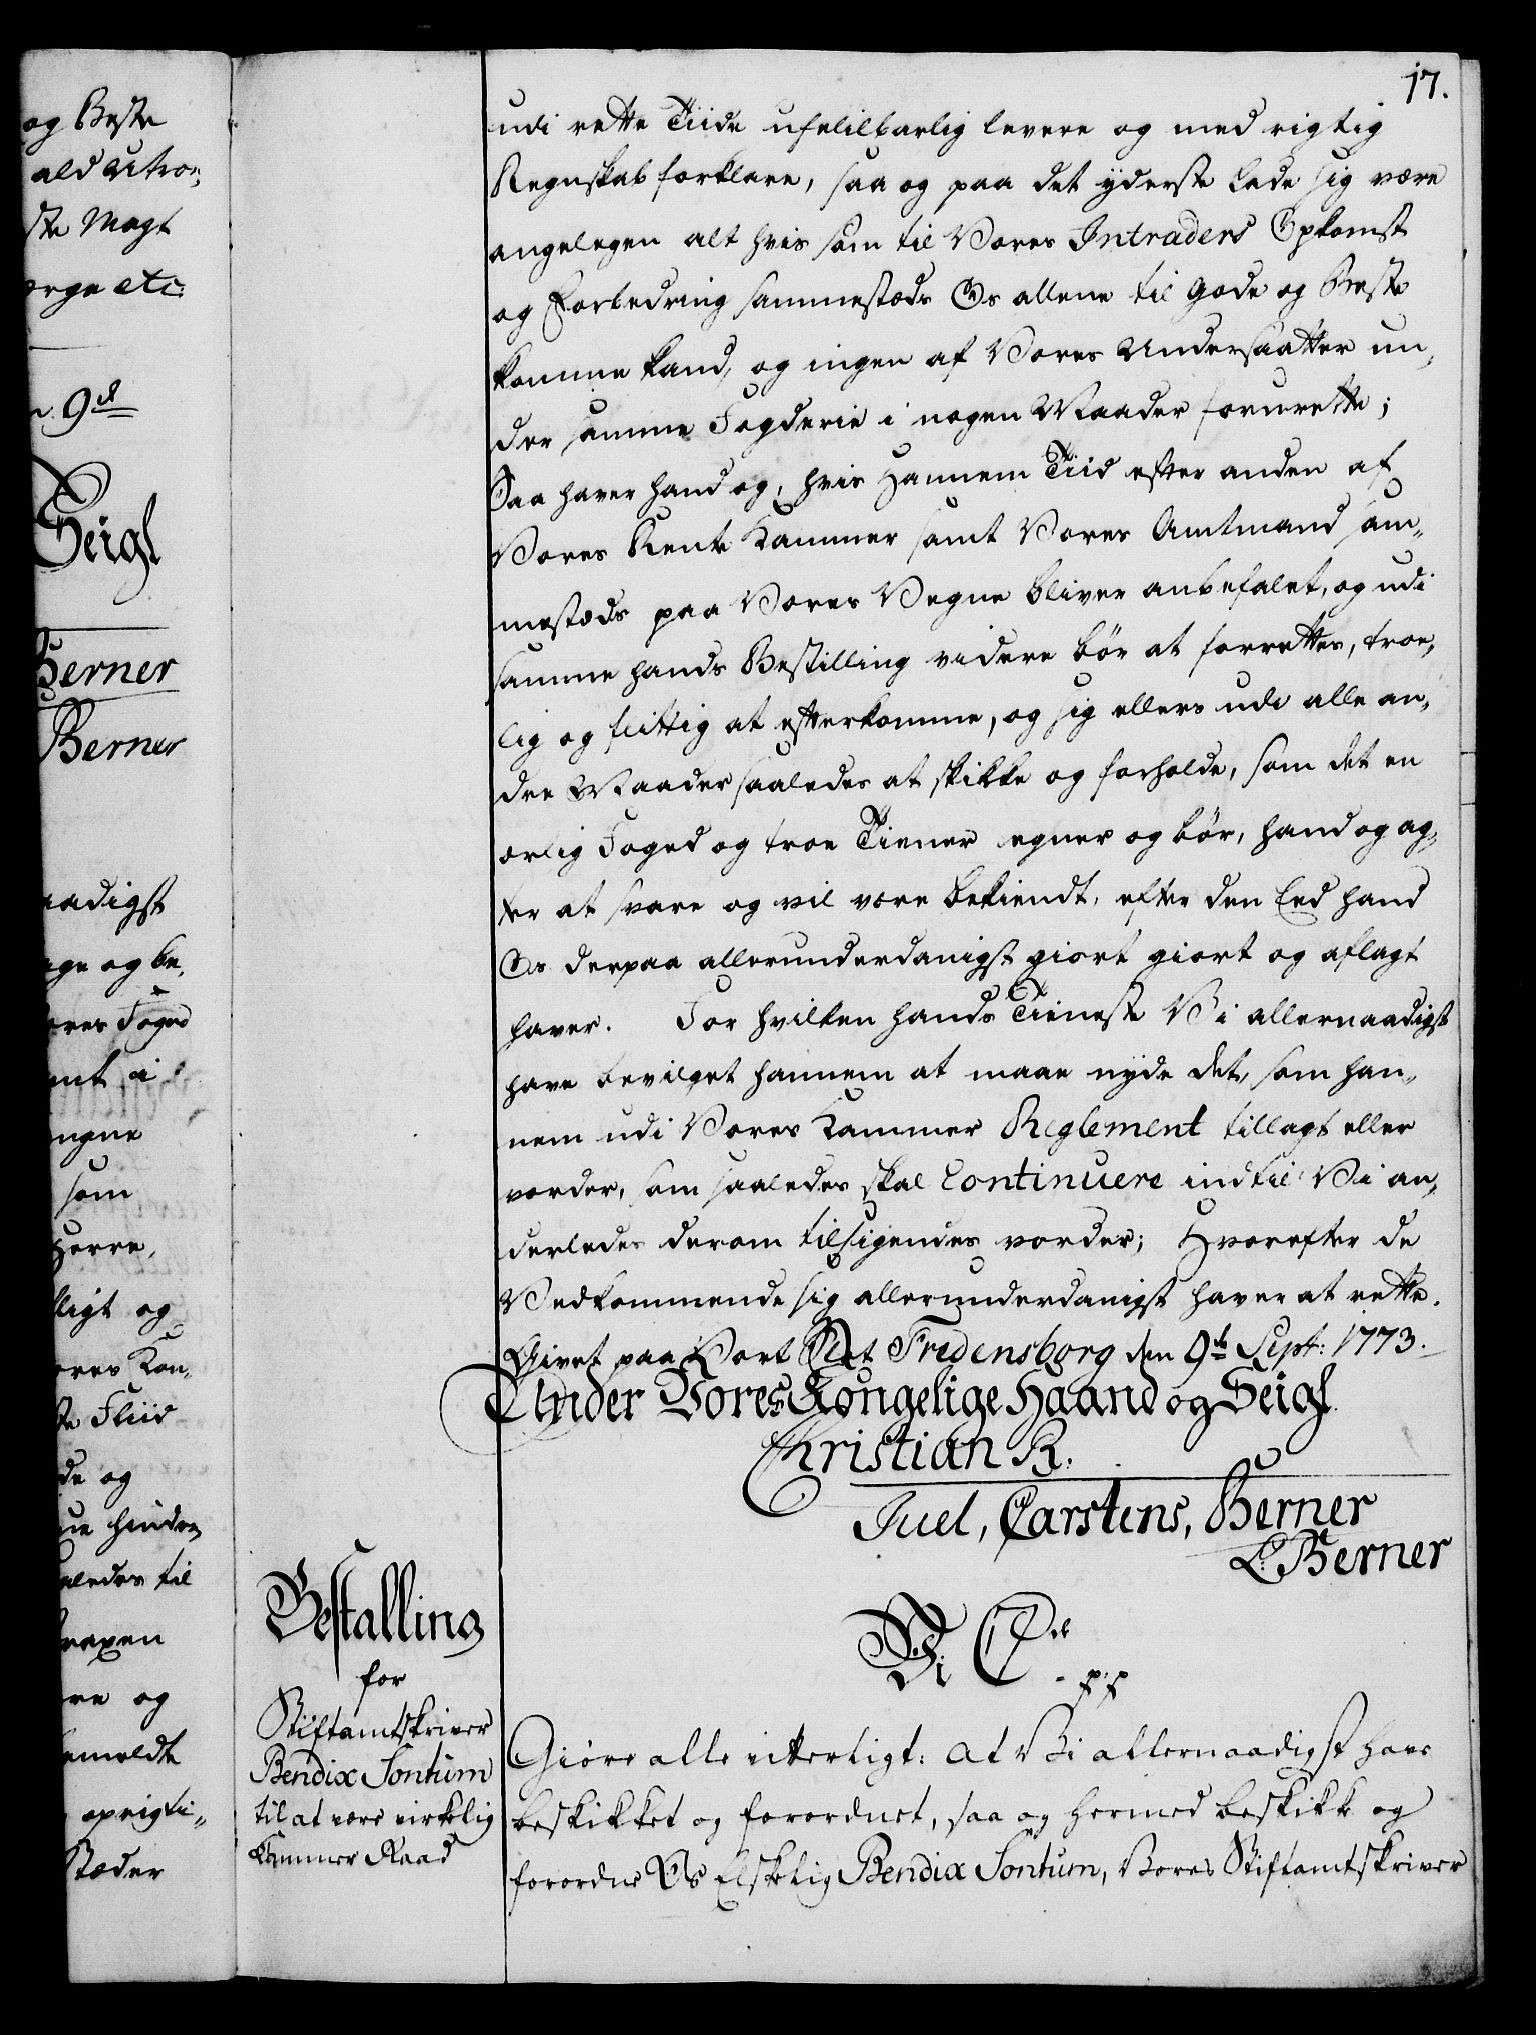 og Beste
ald Utroe,
ste Magt
etc:
9d
Seigl
Berner
Berner
aadigst
age og be,
ores Foged
amt i
som
Herre,
ligt og
ores Kon,
ste Fliid
de og
ue hindre,
aledes til
re og
emeldte
oprigti„
Stæder
17.
udi rette Tiide ufeilbarlig levere og med rigtig
Regnskab forklare, saa og paa det yderste lade sig være
angelegen alt hvis som til Vores Intraders Opkomst
og Forbedring sammestæds Os allene til gode og Beste
komme kand, og ingen af Vores Undersaatter un,
der samme Fogderie i nogen Maader forurette;
Saa haver hand og, hvis Hannem Tiid efter anden af
Vores Rente Kammer samt Vores Amtmand sam„
mestæds paa Vores Vegne bliver anbefalet, og udi
samme hands Bestilling videre bör at forrettes, troe,
lig og flittig at efterkomme, og sig ellers udi alle an,
dre Maader saaledes at skikke og forholde, som det en
ærlig Foged og troe Tiener egner og bör, hand og ag,
ter at svare og vil være bekiendt, efter den Eed hand
Os derpaa allerunderdanigst giort giort og aflagt
haver. For hvilken hands Tieneste Vi allernaadigst
have bevilget hannem at maae nyde det, som han„
nem udi Vores Kammer Reglement tillagt eller
vorder, som saaledes skal Continuere indtil Vi an,
derledes derom tilsigendes vorder; Hvorefter de
Vedkommende sig allerunderdanigst haver at rette.
Givet paa Vort Slot Fredensborg den 9de Sept: 1773.
Under Vores Kongelige Haand og Seigl.
Christian R.
Juel, Carstens, Berner
L. Berner
Bestalling
for
Stiftamtskriver
Bendix Sontum
til at være virkelig
Kammer Raad
Vi C de - p: p
Giöre alle vitterligt: At Vi allernaadigst have
beskikket og forordnet, saa og hermed beskikke og
forordne Os Elskelig Bendix Sontum, Vores Stiftamtskriver